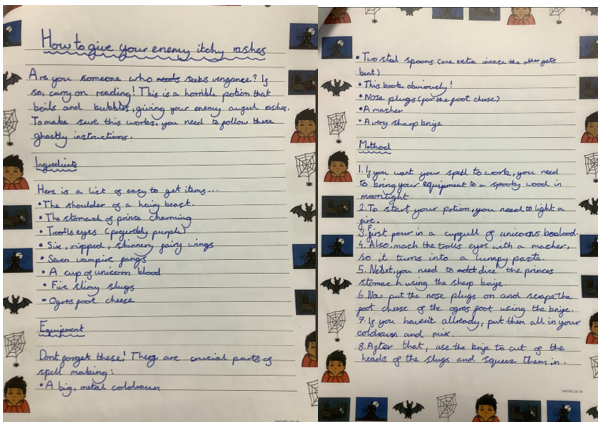 How to give your enemy itchy rashes
Are you someone who needs seeks vengance? If
so, carry on reading! This is a horrible potion that
boils and bubbles, giving your enemy awful rashes.
To make sure this works, you need to follow these
ghastly instructions.
Ingredients
Here is a list of easy to get items...
• The shoulder of a hairy beast.
• The stomach of prince charming
• Trolls eyes (preferably purple)
• Six, ripped, shimmery fairy wings
• Seven vampire fangs
• A cup of unicorn blood
• Five slimy slugs
• Ogres foot cheese
Equipment
Dont forget these! They are crucial parts of
spell making:
• A big, metal coldrawn
• Two steal spoons (one extra incase the other gets
bent)
• This book obviously!
• Nose plugs (for the foot cheese)
• A masher
• A very sharp knife
Method
1. If you want your spell to work, you need
to bring your equipment to a spooky wood in
moonlight
2. To start your potion, you need to light a
fire.
3. First pour in a cupfull of unicorns blood.
4. Also, mash the trolls eyes with a masher,
so it turns into a lumpy paste.
5. Next, you need to dice the princes
stomach using the sharp knife.
6. Now put the nose plugs on and scrape the
foot cheese of the ogres foot using the knife.
7. If you havent allready, put them all in your
coldrawn and mix.
8. After that, use the knife to cut of the
heads of the slugs and squeeze them in.